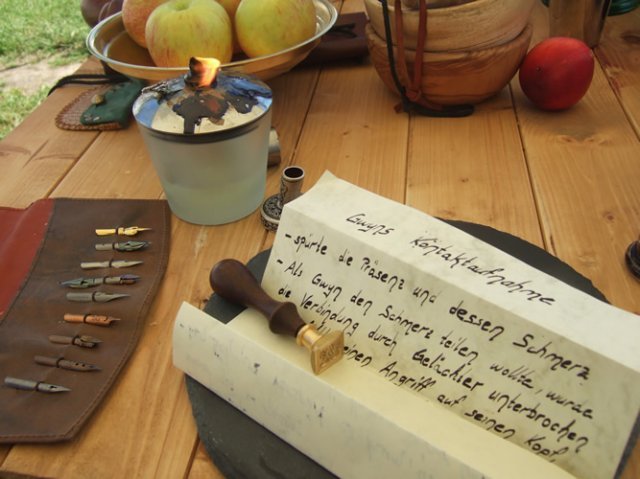 Gwyns Kontaktaufnahme
- spürte die Präsenz und dessen Schmerz
- Als Gwyn den Schmerz teilen wollte, wurde
die Verbindung durch Gelächter unterbrochen
einen Angriff auf seinen Kopf.